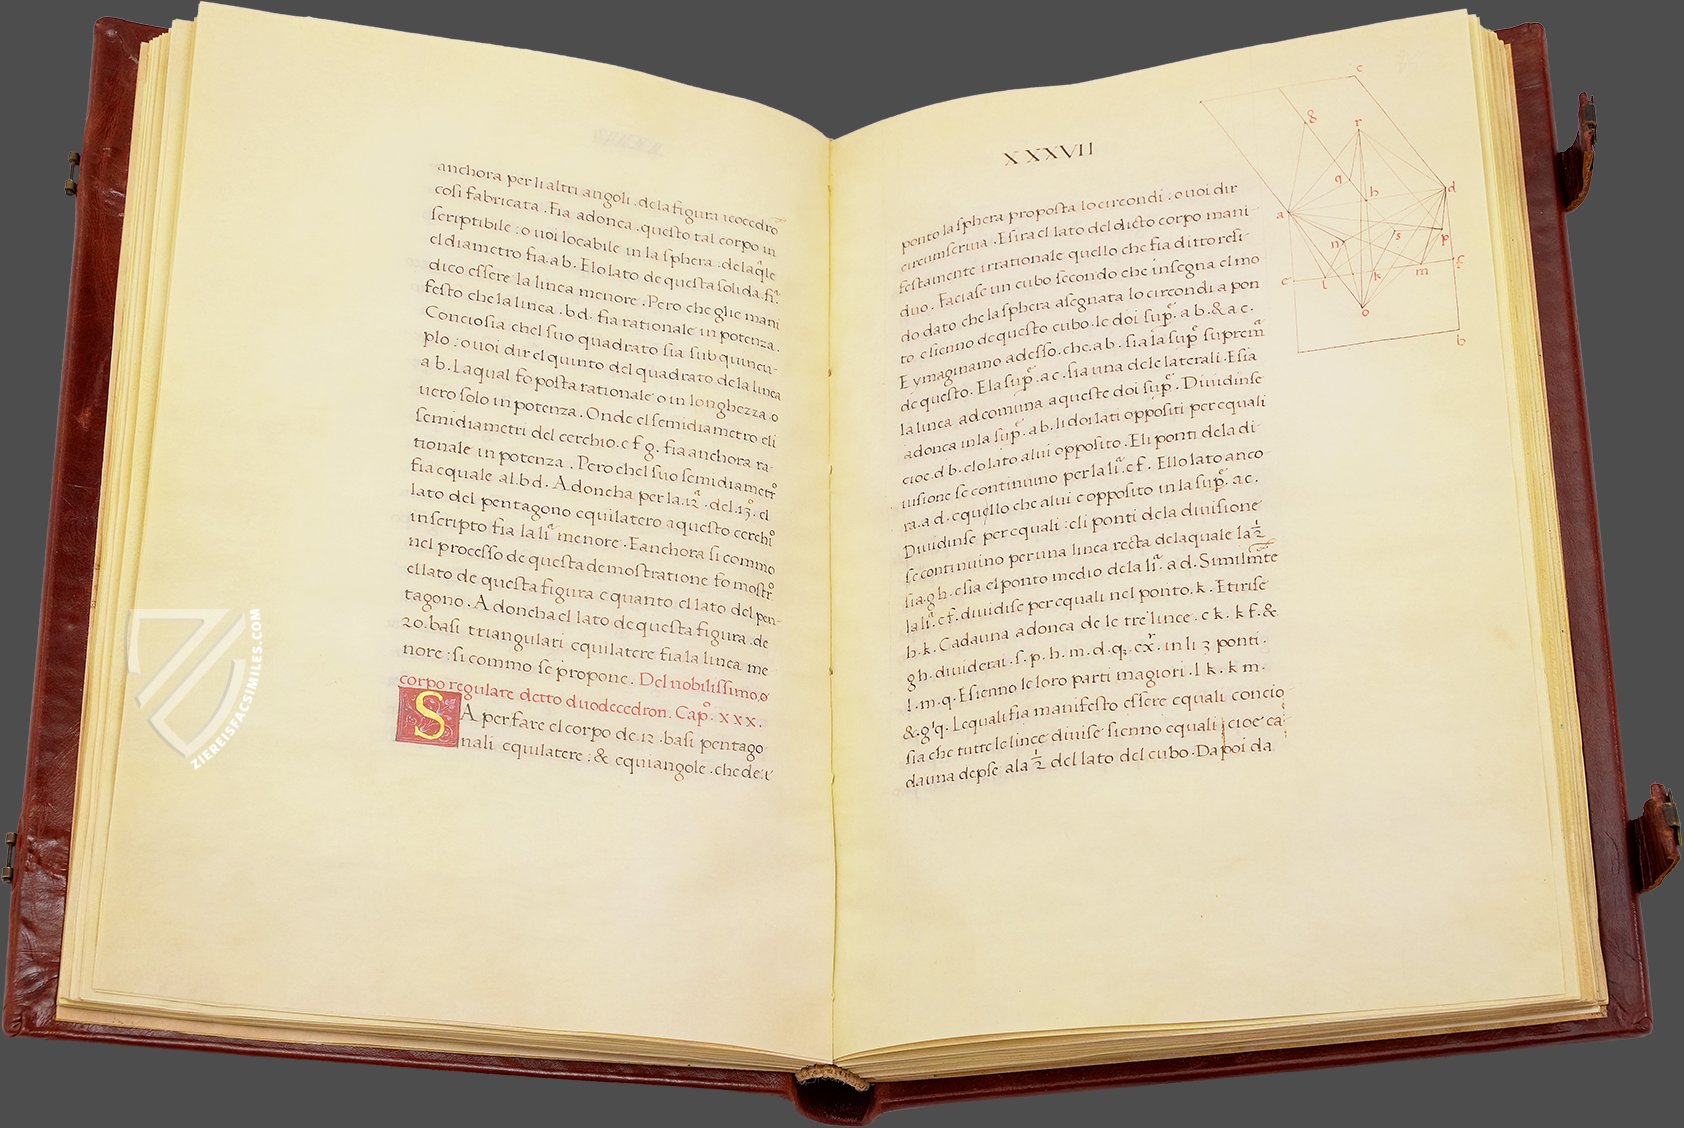 anchora per li altri angoli .dela figura icocedrõ
cosi fabricata . Fia adonca . questo tal corpo in
scriptibile : o uoi locabile in la sphera : dela q̃le
el diametro fia .a b. Elo lato de questa solida fi.ª
dico essere la linea menore . Pero che glie mani
festo che la linea . b d . fia rationale in potenza .
Conciosia chel suo quadrato sia sub quincu-
plo : o uoi dir el quinto del quadrato de la linea
a b. La qual fo posta rationale o in longhezza .o
uero solo in potenza . Onde el semidiametro eli
semidiametri del cerchio .e f g. fia anchora ra-
tionale in potenza . Pero chel suo semidiametrº
fia equale al .b d . Adoncha per la .12.ª del .13.º el
lato del pentagono equilatero a questo cerchiº
inscripto fia la liª menore . E anchora si commo
nel processo de questa demostratione fo mostrº
el lato de questa figura e quanto el lato del pen-
tagono . Adoncha el lato de questa figura .de
20. basi triangulari equilatere fia la linea me
nore : si commo se propone . Del nobilissimo.º
corpo regulare detto duodecedron . Capº. xxx.
SA per fare el corpo de .12 .basi pentago
nali equilatere : & equiangole . che de.i
XXXVII
ponto la sphera proposta lo circondi : o uoi dir
circumscriua . E sira el lato del dicto corpo mani
festamente irrationale quello che fia ditto resi-
duo . Faciase un cubo secondo che insegna el mo
do dato che la sphera asegnata lo circondi a pon
to e sienno de questo cubo .le doi supº. a b. & a c .
E ymaginamo adesso .che .a b . sia la supº suprema
de questo . E la supº. a c .sia una dele laterali . E sia
la linea .a d comuna a queste doi supº. Diuidinse
adonca in la supº. a b. li doi lati oppositi per equali
cioe .d b. elo lato a lui opposito . E li ponti dela di-
uisione se continuino per la liª. e f . E llo lato anco-
ra .a d . e quello che a lui e opposito in la supº. a c .
Diuidinse per equali : e li ponti dela diuisione
se continuino per una linea recta dela quale la 1/2
sia .g h . e sia el ponto medio de la liª. a d . Similmẽte
la liª. e f . diuidise per equali nel ponto .k . E tirise
h k . Cadauna adonca de le tre linee . e k . k f . &
g h . diuiderai .s . p . h . m . d . q . e x . in li 3 ponti .
l . m . q . E sienno le loro parti magiori .l k . k m .
& .g q . Le quali fia manifesto essere equali concio-
sia che tutte le linee diuise sienno equali cioe ca-
dauna depse ala 1/2 del lato del cubo . Da poi da
c
g
r
q
h
d
a
n
s
p
e
l
k
m
f
o
b
ZIEREISFACSIMILES.COM